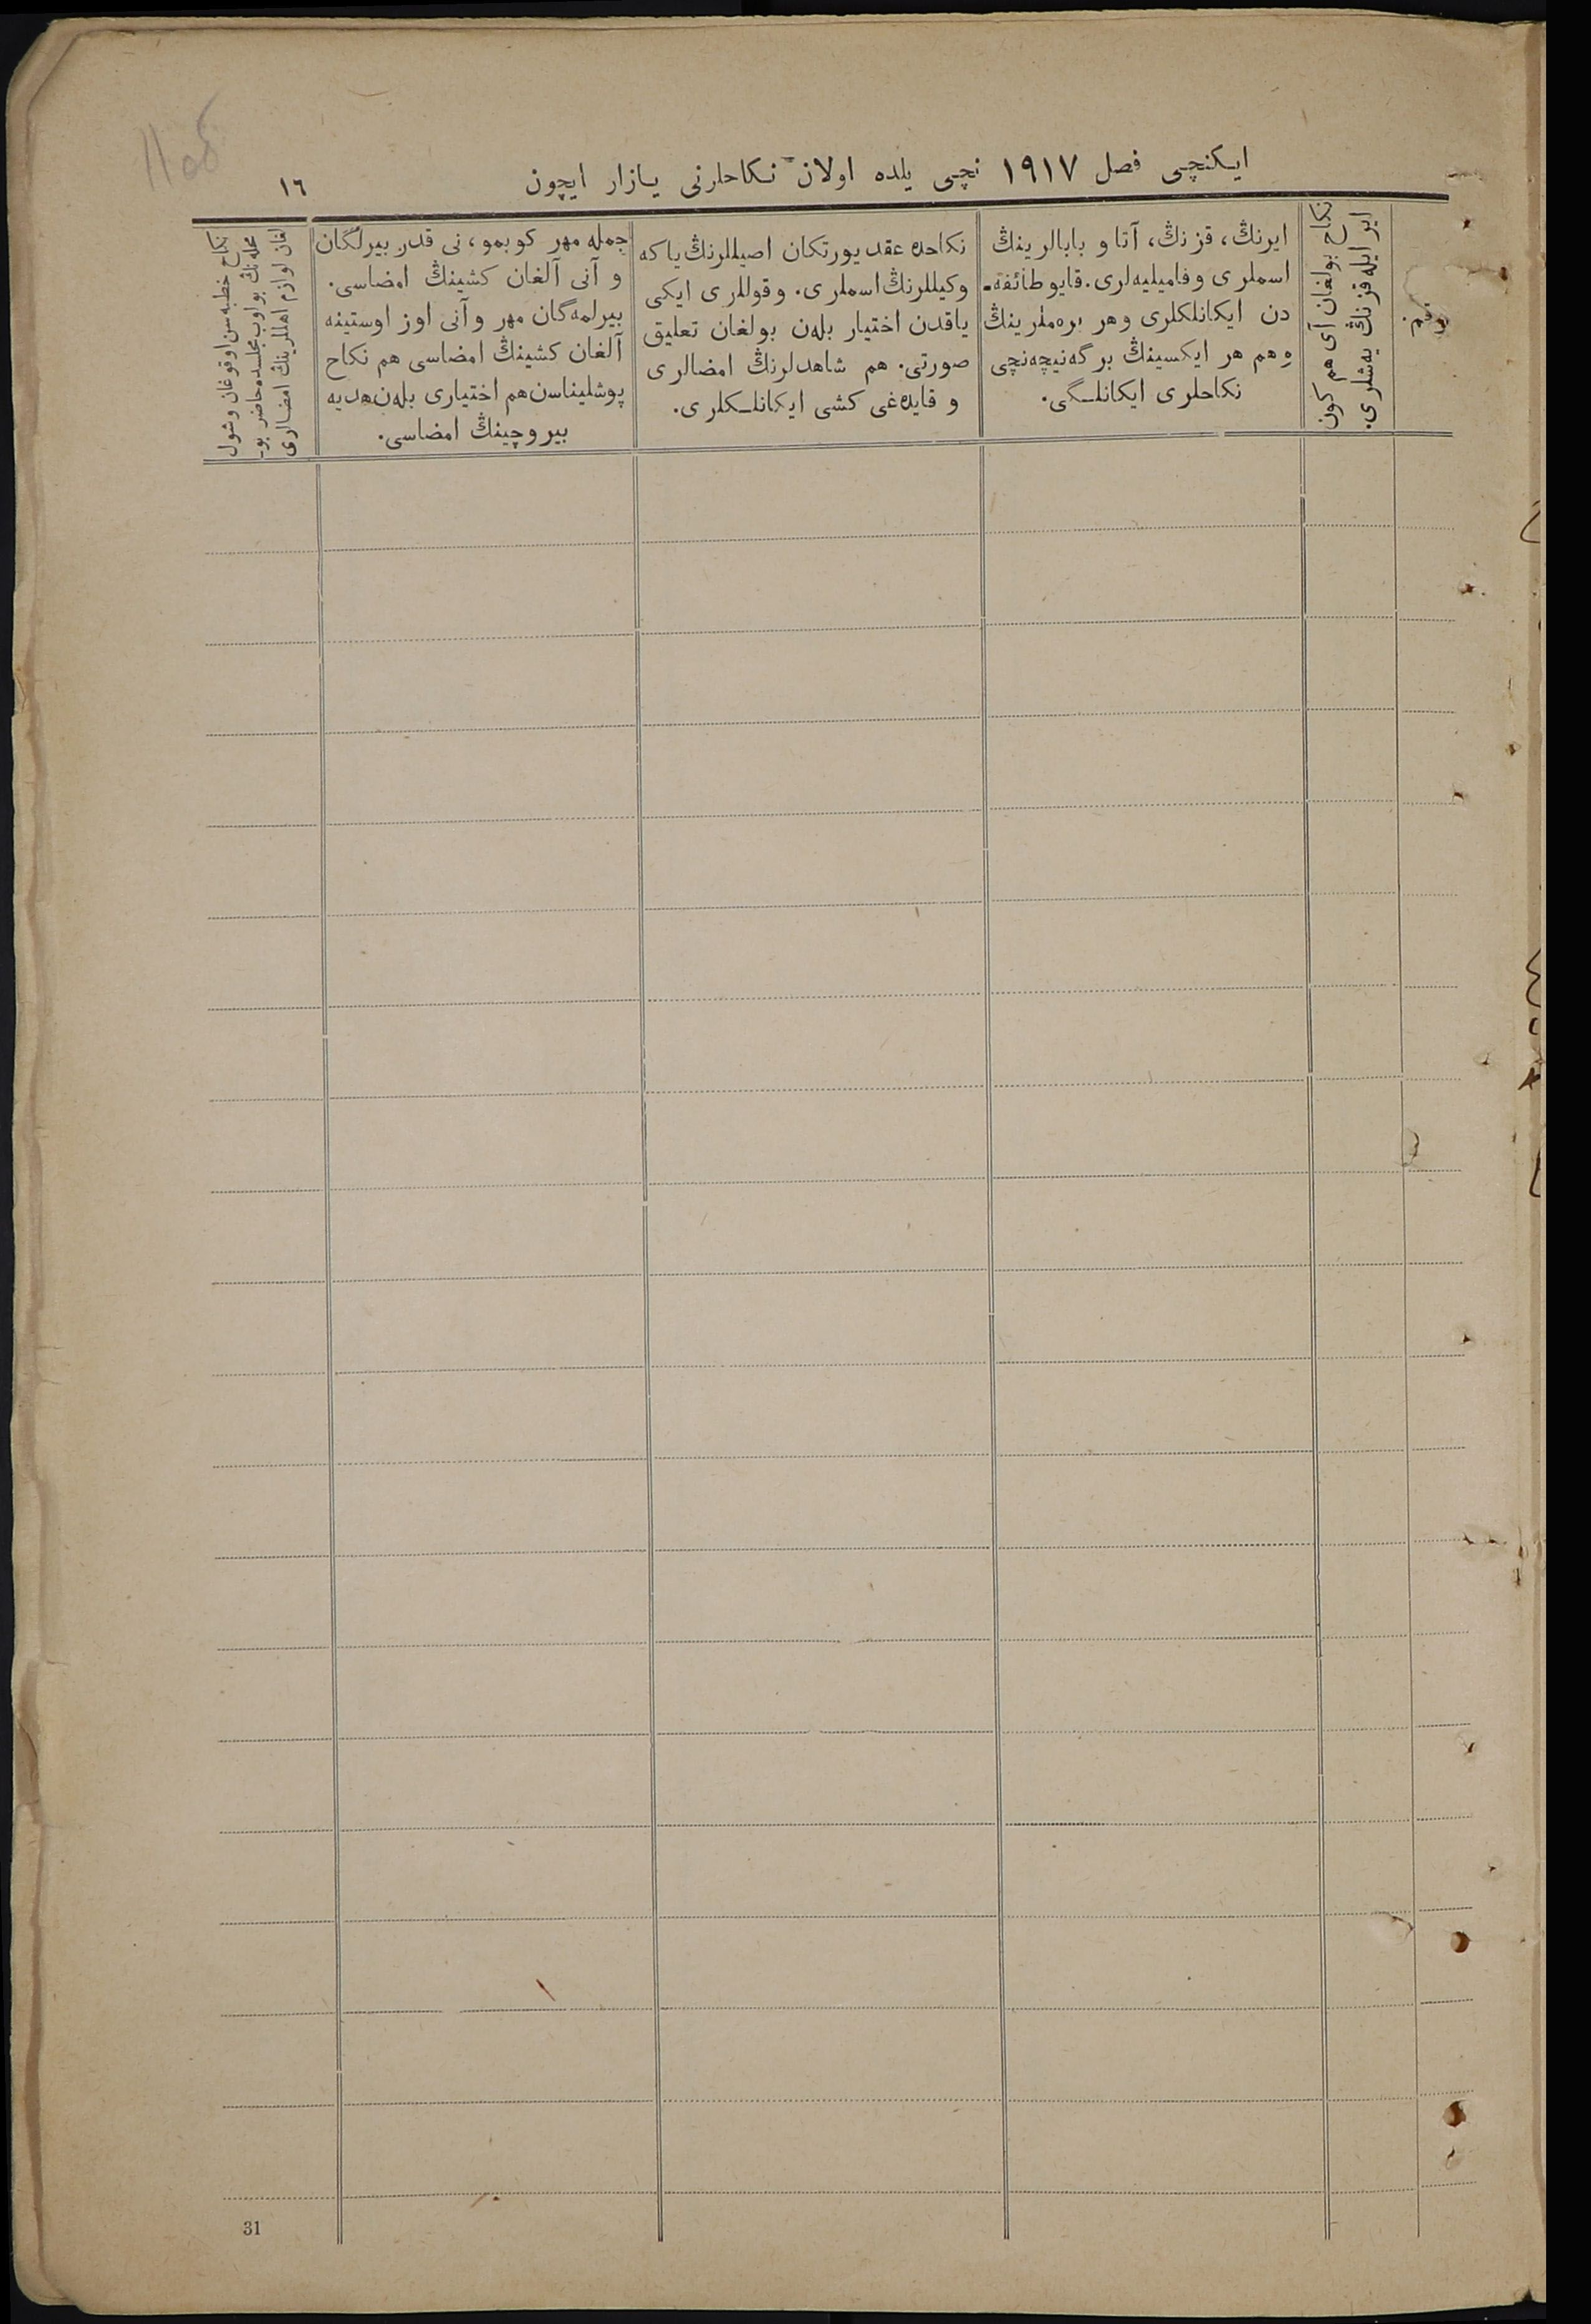 11 об
ایکنچی فصل ١٩١٧ نچی یلده اولان نکاحلرنی یازار ایچون
١٦
نکاح بولغان آی هم کون
ایر ایله قزنڭ یه‌شلری.
ایرنڭ، قزنڭ، آتا و بابالرینڭ
اسملری وفامیلیه‌لری. قایو طائفه-
دن ایکانلکلری وهر بره‌ملرینڭ
وهم هر ایکسینڭ برگه نیچه‌نچی
نکاحلری ایکانلـگی.
نکاحده عقد یورتکان اصیللرنڭ یاکه
وکیللرنڭ اسملری. وقوللری ایکی
یاقدن اختیار بله‌ن بولغان تعلیق
صورتی. هم شاهدلرنڭ امضالری
و قایده‌غی کشی ایکانلـکلری.
جمله مهر کوبمو، نی قدر بیرلگان
و آنی آلغان کشینڭ امضاسی.
بیرلمه‌گان مهر وآنی اوز اوستینه
آلغان کشینڭ امضاسی هم نکاح
پوشلیناسن هم اختیاری بله‌ن هدیه
بیروچینڭ امضاسی.
نکاح خطبه سن اوقوغان وشول
محله‌نڭ بولوب مجلسده حاضر بو-
لغان لوازم اهللرینڭ امضالری
31